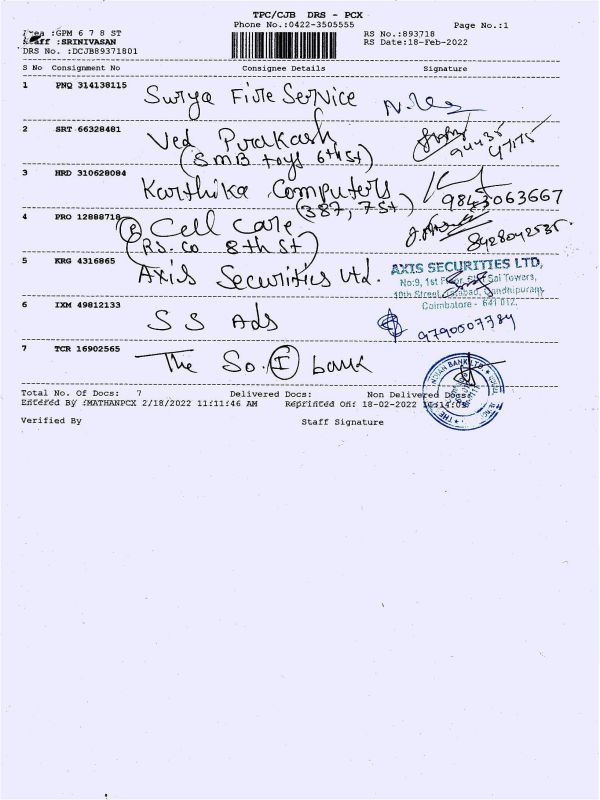 TPC/CJB DRS - PCX
Phone No.:0422-3505555 Page No.:1
:GPM 6 7 8 ST RS No.:893718
Staff :SRINIVASAN RS Date:18-Feb-2022
DRS No. :DCJB89371801
S No Consignment No Consignee Details Signature
1 PNQ 314138115 Surya Fire Service
2 SRT 66328481 Ved Prakash
(SMB toys 6th St) 94435
47175
3 HRD 310628084 Karthika Computers
(387, 7 St) 9843063667
4 PRO 12888718 Cell Care
(RS. Co 8th St) 8428042535
5 KRG 4316865 Axis Securities Ltd.
AXIS SECURITIES LTD,
No:9, 1st Floor, Sai Towers,
10th Street, Gandhipuram,
Coimbatore - 641 012.
6 IXM 49812133 S S Ads 9790007784
7 TCR 16902565 The So. I bank
Total No. Of Docs: 7 Delivered Docs: Non Delivered Docs:
Entered By :MATHANPCX 2/18/2022 11:11:46 AM Reprinted On: 18-02-2022
Verified By Staff Signature